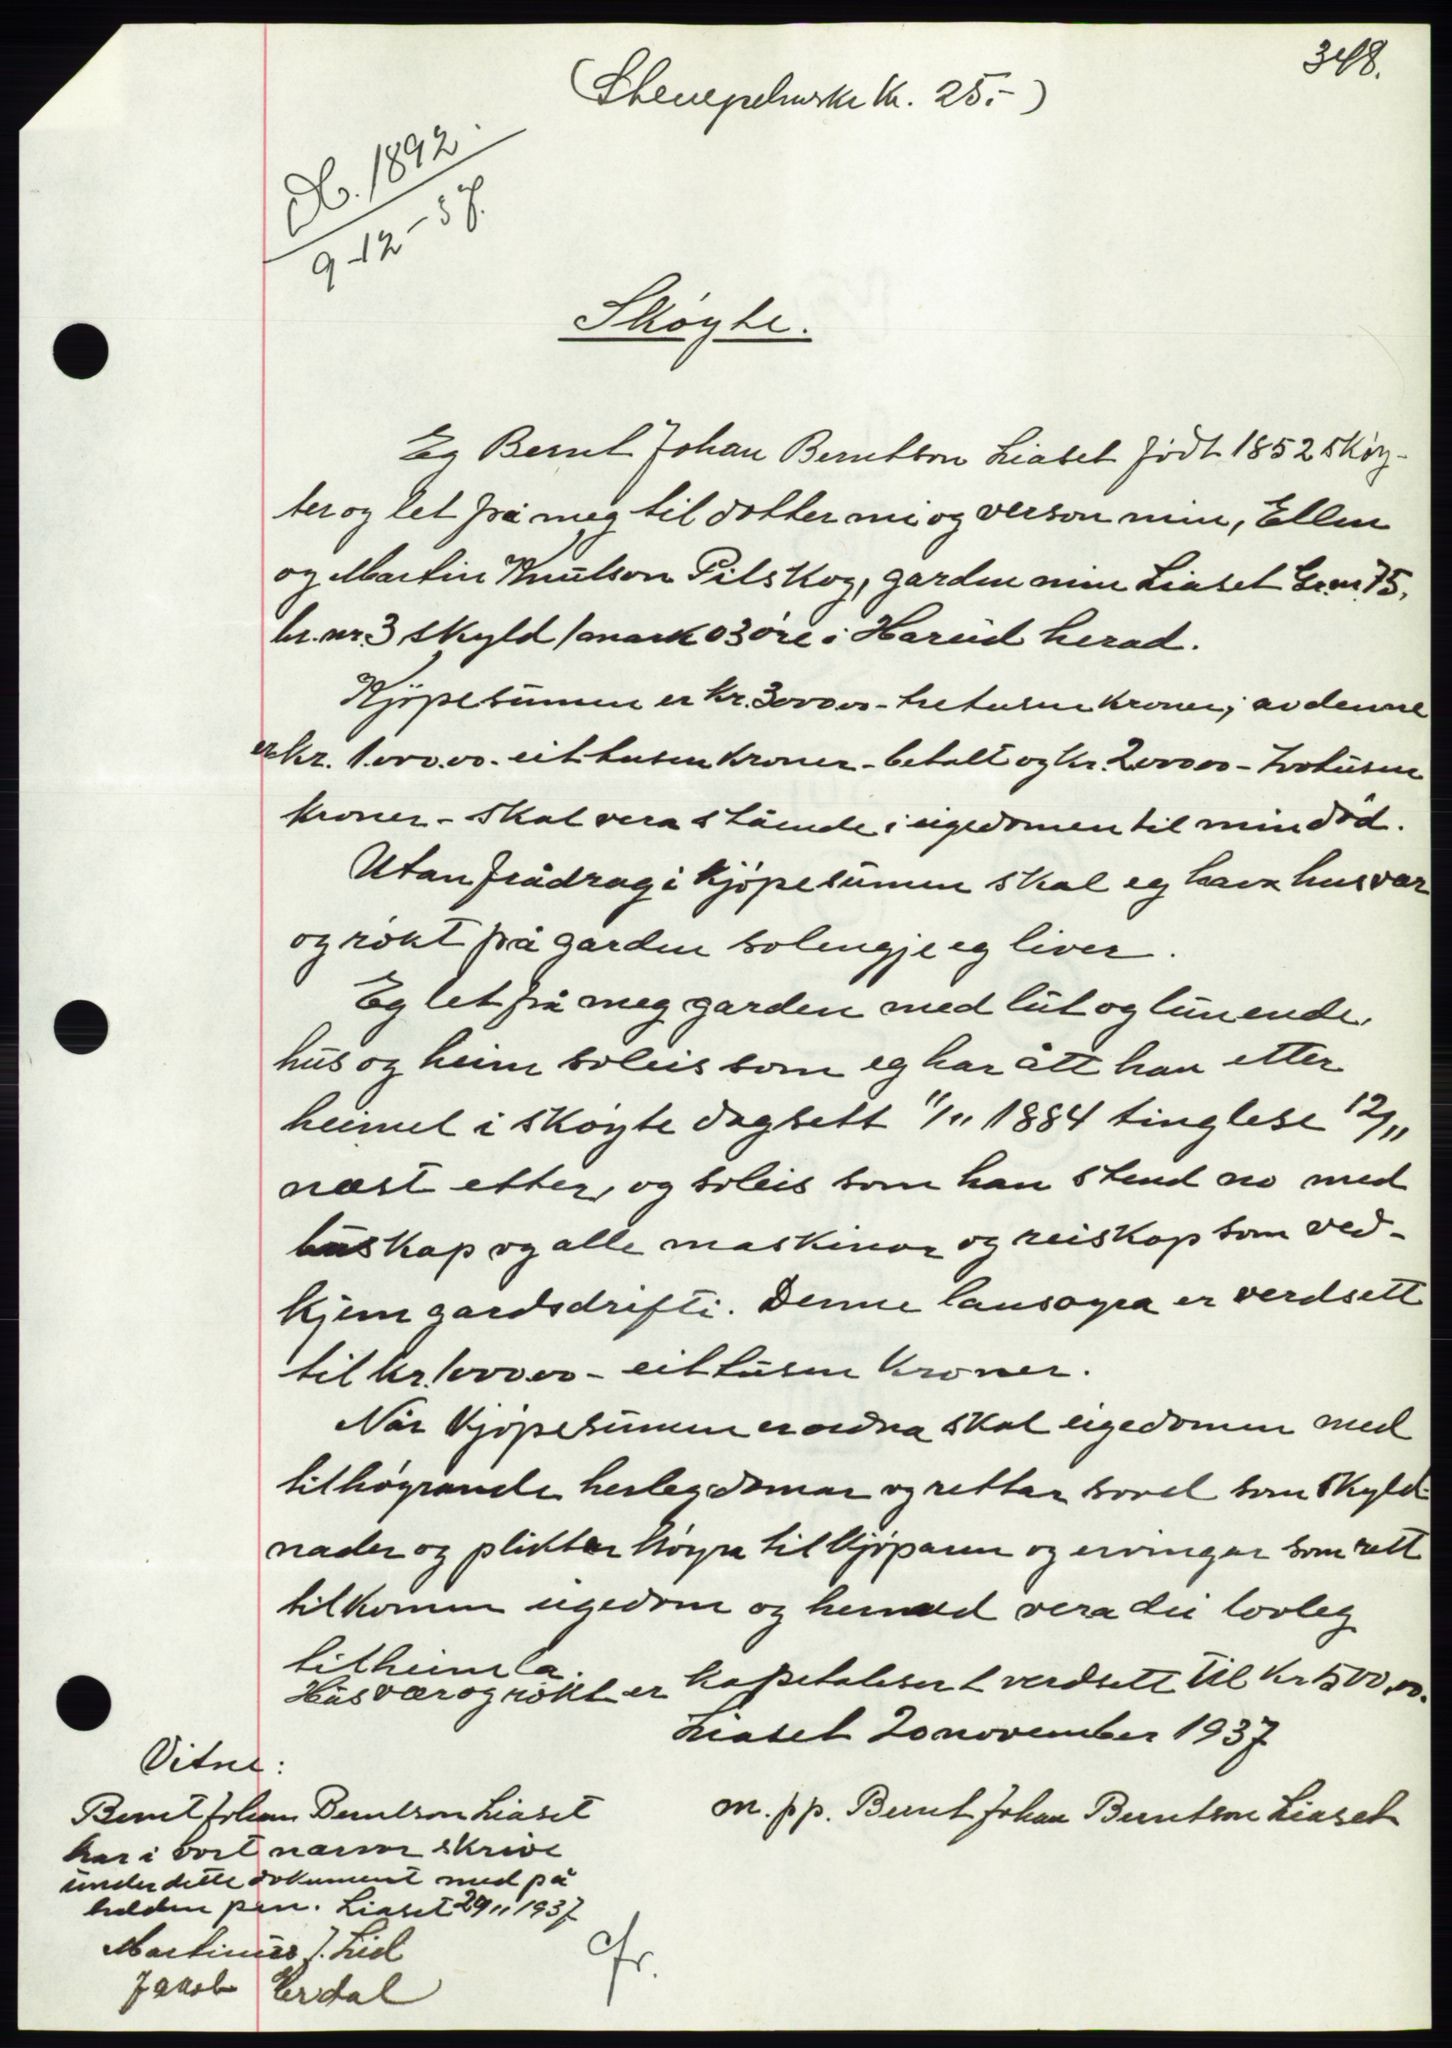 348.
(Stempelmerke kr. 25.-)
Db. 1892.
9-12-37.
Skøyte.
Eg Bernt Johan Berntson Liaset født 1852 skøy-
ter og let frå meg til dotter mi og verson min, Ellen
og Martin Knutson Pilskog, garden min Liaset Gr.nr. 75,
br.nr. 3 skyld 1 mark 03 øre i Hareid herad.
Kjøpesumen er kr. 3000.00 - tretusen kroner; av denne
er kr. 1.000.00 - eit tusen kroner - betalt og kr. 2.000.00 - tvotusen
kroner - skal verastående i eigedomen til min død.
Utan frådrag i kjøpesumen skal eg hava husvær
og røkt på garden solengje eg liver.
Eg let frå meg garden med lut og lunende,
hus og heim soleis som eg har ått han etter
heimel i skøyte dagsett 11/11 1884 tinglese 12/11
næst etter, og soleis som han stend no med
buskap og alle maskinor og reiskap som ved-
kjem gardsdrifti. Denne lausøyra er verdsett
til kr. 1000.00 - eit tusen kroner.
Når kjøpesumen er ordna skal eigedomen med
tilhøyrande herlegdomar og rettar sovel som skyld-
nader og plikter høyra til kjøparen og ervingar som rett
tilkomen eigedom og hermed vera dei lovleg
tilheimla.
Husvær og røkt er kapitalisert verdsett til kr 500,00.
Liaset 20 november 1937
m. p p. Bernt Johan Berntson Liaset
Vitne:
Bernt Johan Berntson Liaset
har i vort nærvær skrive
under dette dokument med på
holden pen. Liaset 20/11 1937
Martinus J. Lid
Jakob Erdal